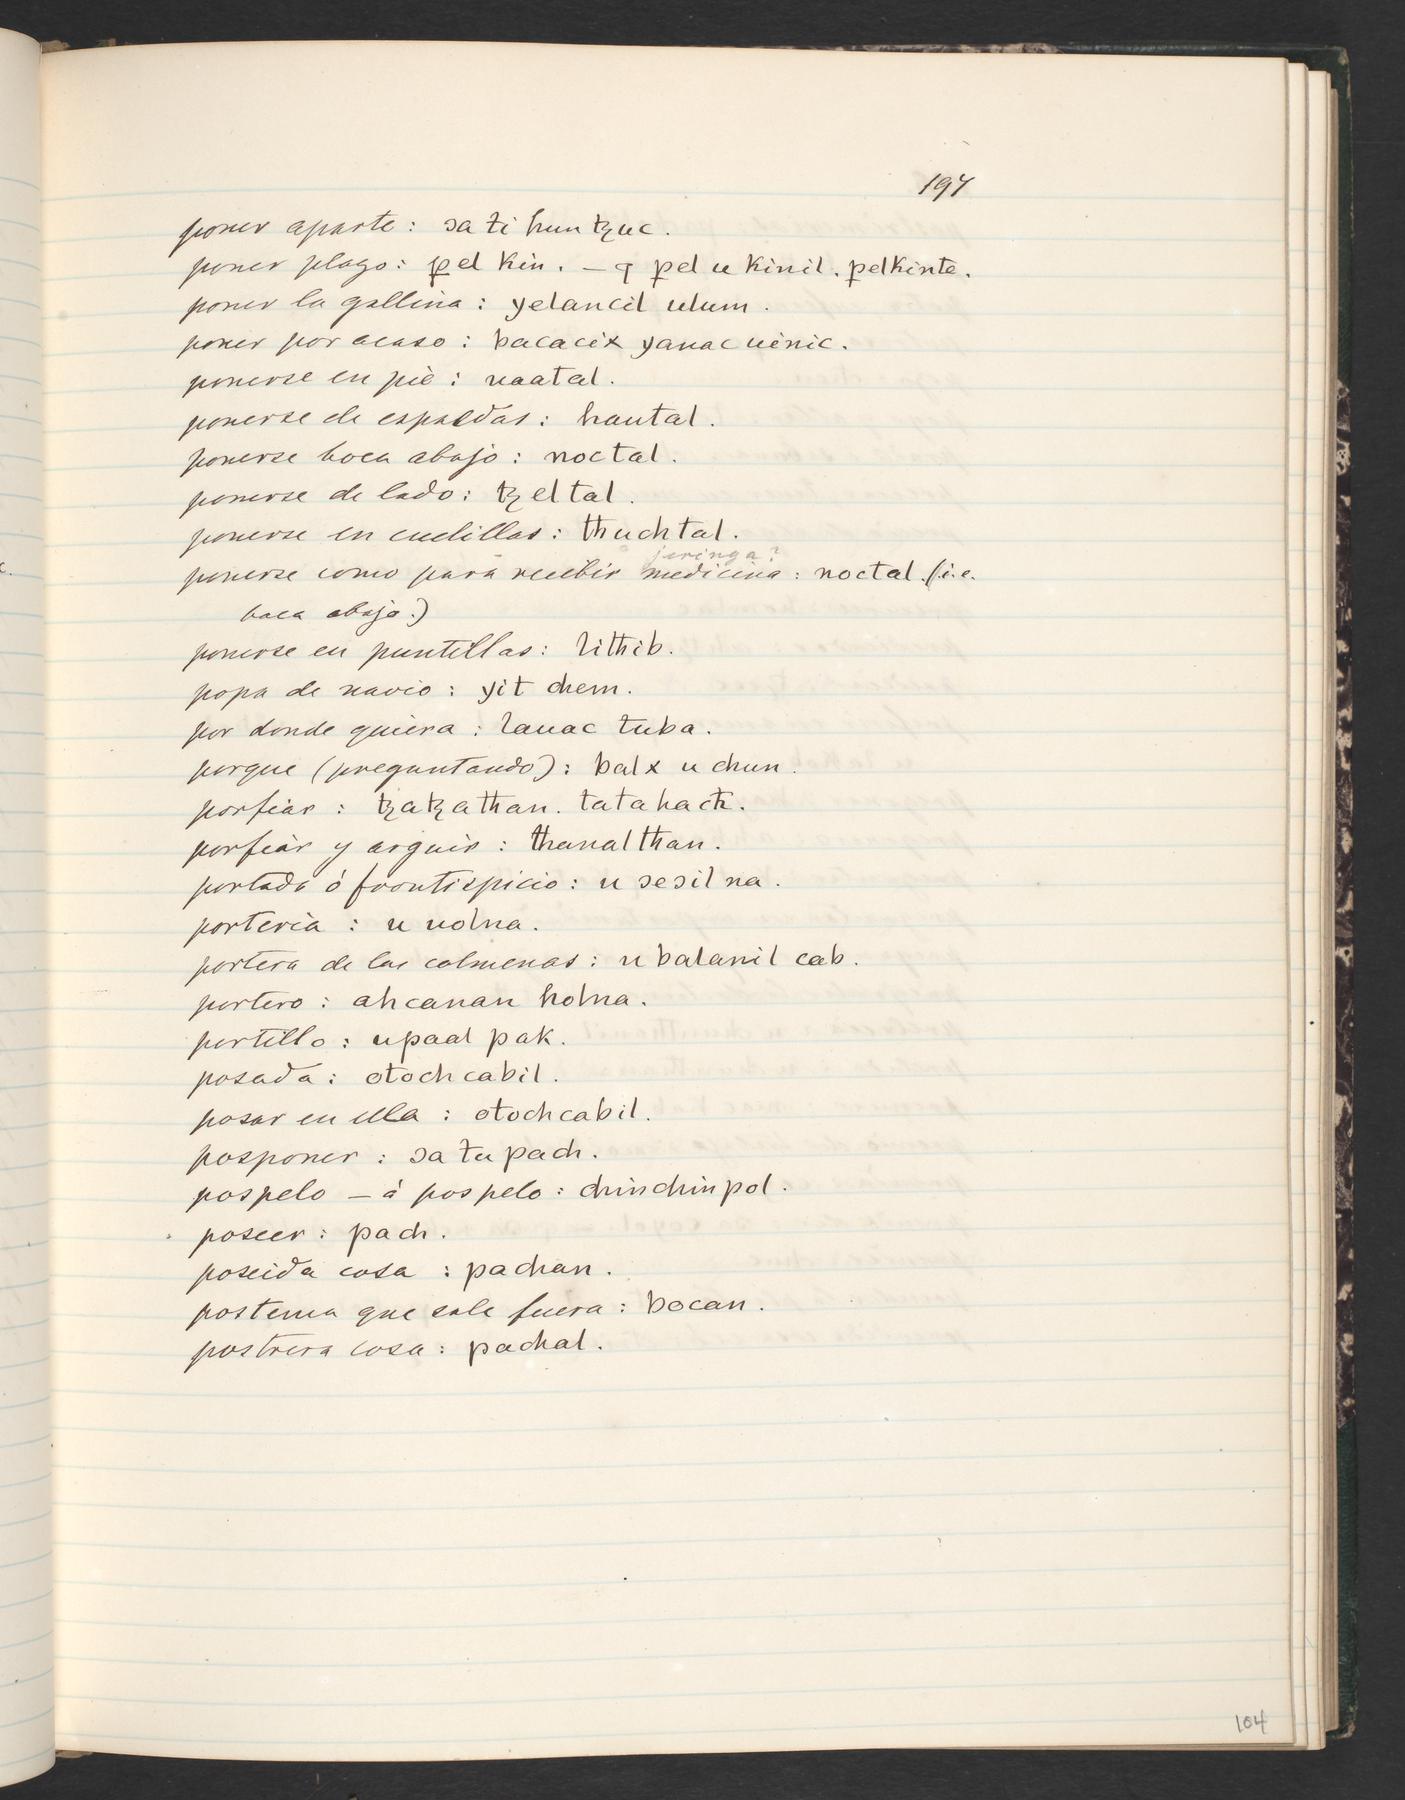 197
poner aparte: ɔa ti hun tzuc.
poner plago: p̱el kin. — q p̱el u kinil. p̱elkinte.
poner la gallina: yelancil ulum.
poner por acaso: bacacix yanac uinic.
ponerse en pie: uaatal.
ponerse de espaldas: hautal.
ponerse boca abajo: noctal.
ponerse de lado: tzeltal.
ponerse en cuclillas: thuchtal.
jeringa?
ponerse como para recebir medicina: noctal. (i.e.
boca abajo.)
ponerse en puntillas: lithib.
popa de navio: yit chem.
por donde quiera: lauac tuba.
porque (preguntando): balx u chun.
porfiar: tzatzathan. tatahach.
porfiar y arguir: thanalthan.
portada ó frontispicio: u ɔeɔil na.
porteria: u uolna.
portera de las colmenas: u balamil cab.
portero: ahcanan holna.
portillo: u paal pak.
posada: otochcabil.
posar en ella: otochcabil.
posponer: ɔa tu pach.
pospelo — á pospelo: chinchinpol.
poseer: pach.
poseida cosa: pachan.
postema que sale fuera: bocan.
postrera cosa: pachal.
104